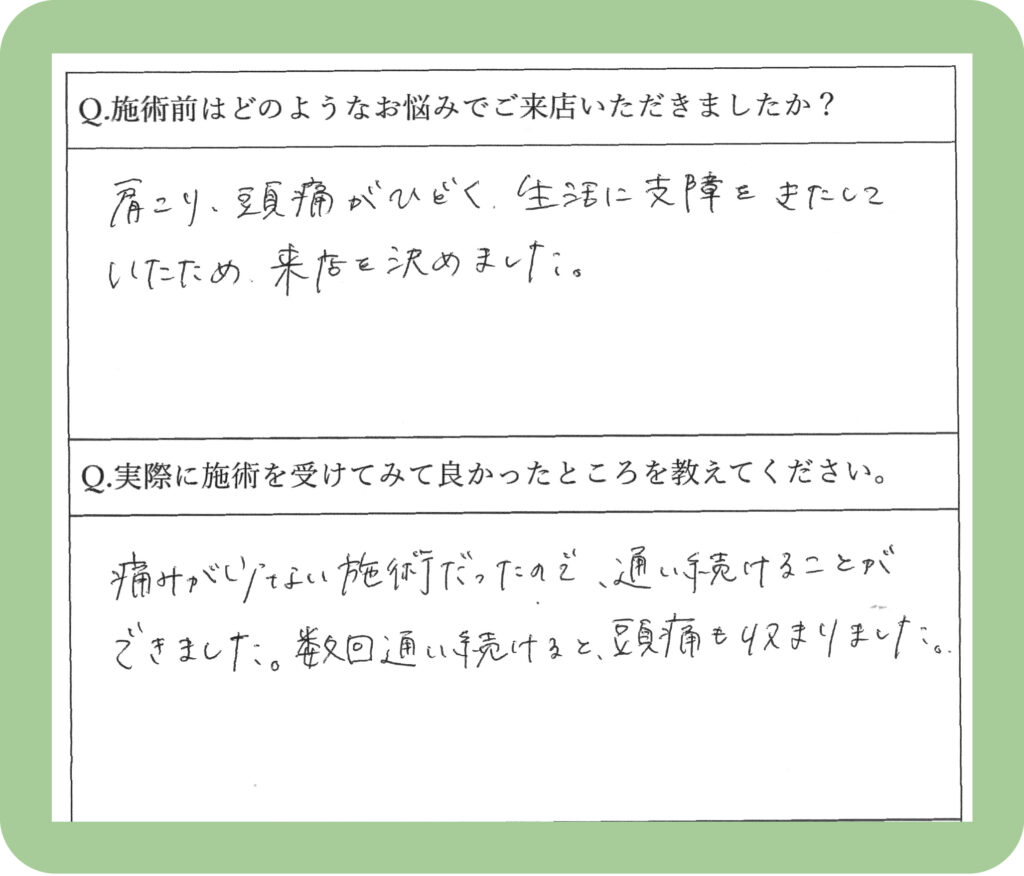 Q.施術前はどのようなお悩みでご来店いただきましたか？
肩こり、頭痛がひどく、生活に支障をきたして
いたため、来店を決めました。
Q.実際に施術を受けてみて良かったところを教えてください。
痛みが少ない施術だったので、通い続けることが
できました。数回通い続けると、頭痛も収まりました。